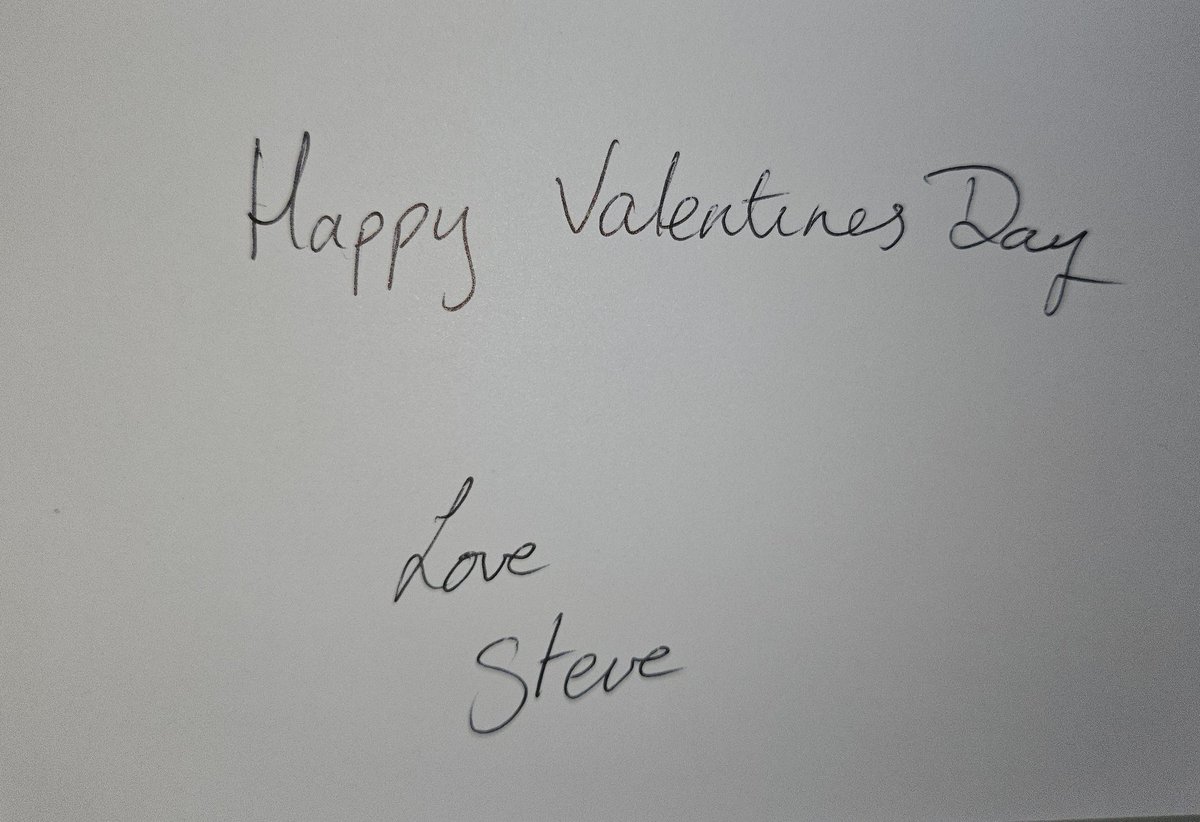 Happy Valentines Day
Love
Steve